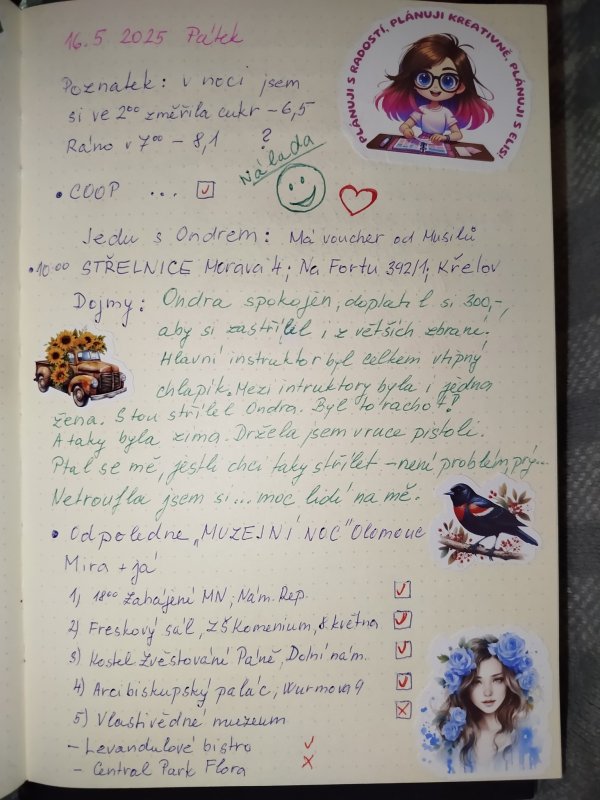 16.5 2025 Pátek
PLÁNUJI S RADOSTÍ, PLÁNUJI KREATIVNĚ, PLÁNUJI S ELIS!
Poznatek: v noci jsem
si ve 2⁰⁰ změřila cukr - 6,5
Ráno v 7⁰⁰ - 8,1 ?
Nálada
• COOP ...
Jedu s Ondrem: Má voucher od Musilů
• 10:00 STŘELNICE Morava 4; Na Fortu 392/1; Křelov
Dojmy: Ondra spokojen, doplatil si 300,-,
aby si zastřílel i z větších zbraní.
Hlavní instruktor byl celkem vtipný
chlapík. Mezi intruktory byla i jedna
žena. S tou střílel Ondra. Byl to rachot!
A taky byla zima. Držela jsem v ruce pistoli.
Ptal se mě, jestli chci taky střílet - není problém, prý...
Netroufla jsem si... moc lidí na mě.
• Odpoledne „MUZEJNÍ NOC" Olomouc
Mira + já
1) 18⁰⁰ Zahájení MN; Nám. Rep.
2) Freskový sál, ZŠ Komenium, 8. května
3) Kostel Zvěstování Páně, Dolní nám.
4) Arcibiskupský palác, Wurmova 9
5) Vlastivědné muzeum
- Levandulové bistro
- Central Park Flora